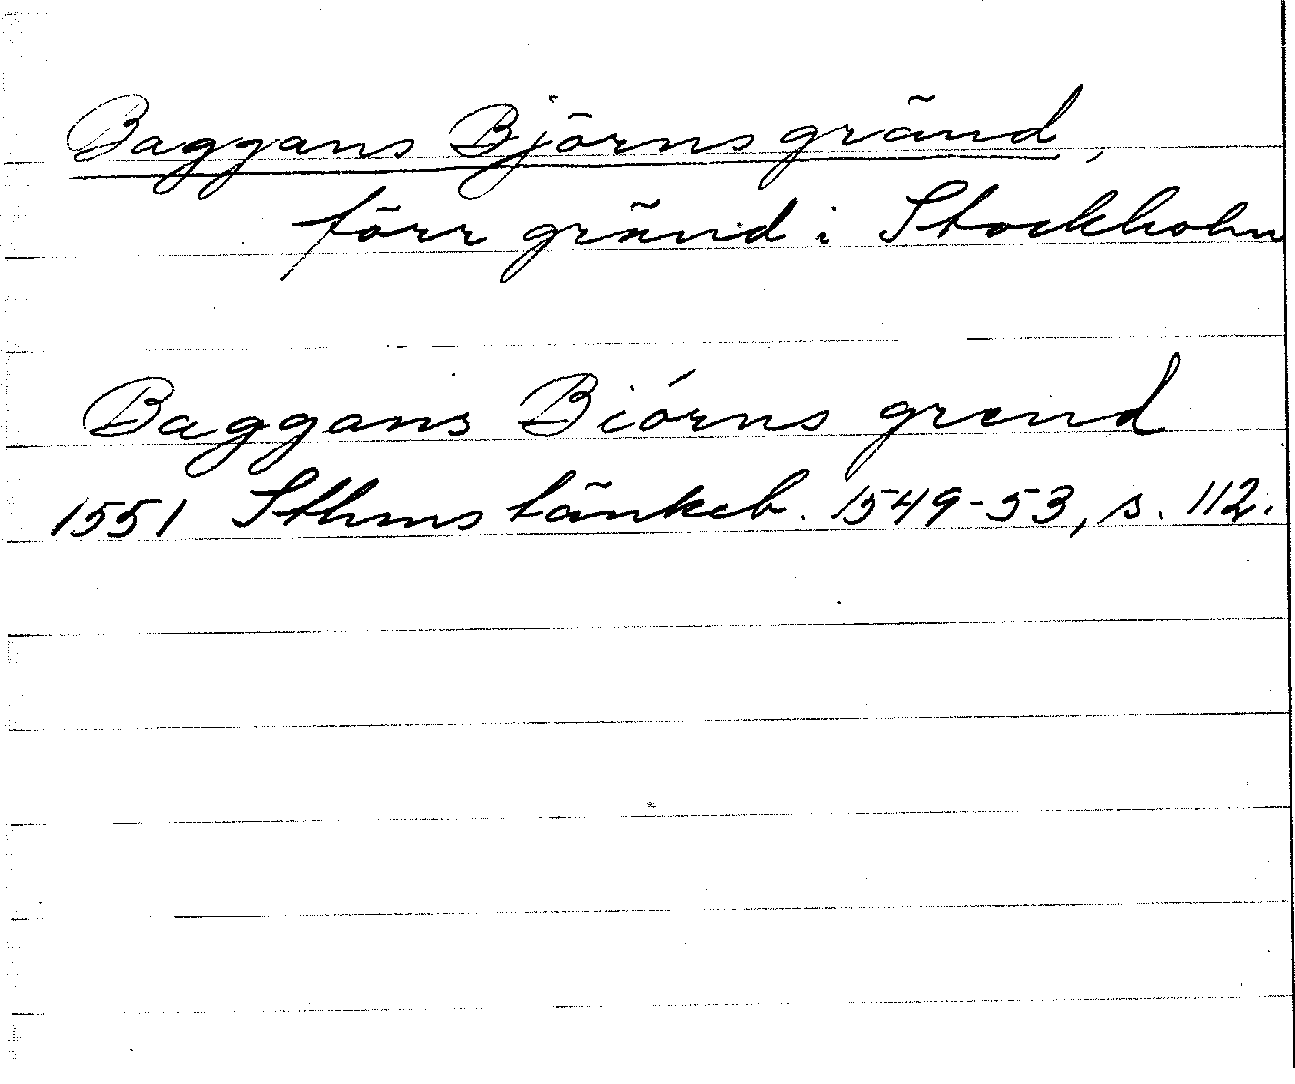 Baggans Björns gränd,
förr gränd i Stockholm
Baggans Biórns grend
1551 Sthms tänkeb. 1549-53, s. 112.